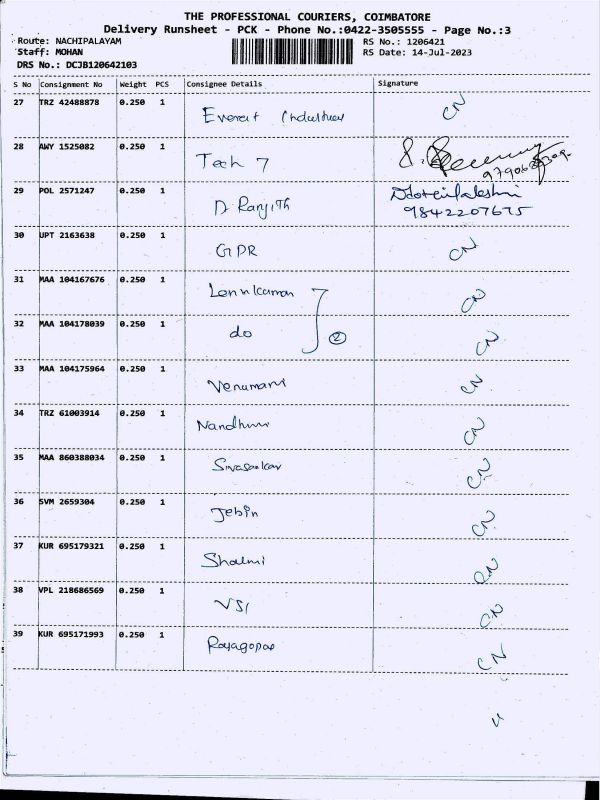 THE PROFESSIONAL COURIERS, COIMBATORE
Delivery Runsheet - PCK - Phone No.:0422-3505555 - Page No.:3
Route: NACHIPALAYAM RS No.: 1206421
Staff: MOHAN RS Date: 14-Jul-2023
DRS No.: DCJB120642103
S No Consignment No Weight PCS Consignee Details Signature
27 TRZ 42488878 0.250 1 Everest CN
28 AWY 1525082 0.250 1 Tech 7
29 POL 2571247 0.250 1 D Ranjith
9842207675
30 UPT 2163638 0.250 1 GPR CN
31 MAA 104167676 0.250 1 CN
32 MAA 104178039 0.250 1 do 2 CN
33 MAA 104175964 0.250 1 Venumani CN
34 TRZ 61003914 0.250 1 CN
35 MAA 860388034 0.250 1 Sivasankar CN
36 SVM 2659304 0.250 1 Jebin CN
37 KUR 695179321 0.250 1 Shalmi CN
38 VPL 218686569 0.250 1 VSI CN
39 KUR 695171993 0.250 1 CN